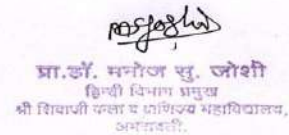 प्रा.डॉ. मनोज सु. जोशी
हिन्दी विभाग प्रमुख
श्री शिवाजी कला व वाणिज्य महाविद्यालय,
अमरावती.